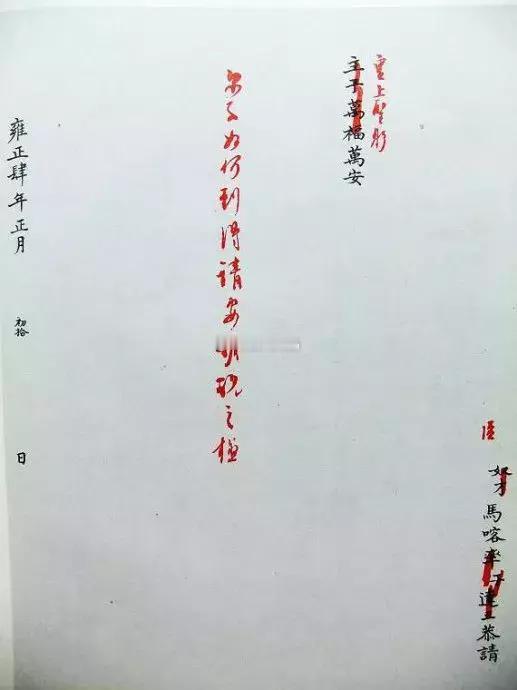 臣
奴才馬喀率子達恭請
皇上聖躬
主子萬福萬安
尔子如何到得請安之
雍正肆年正月初拾日